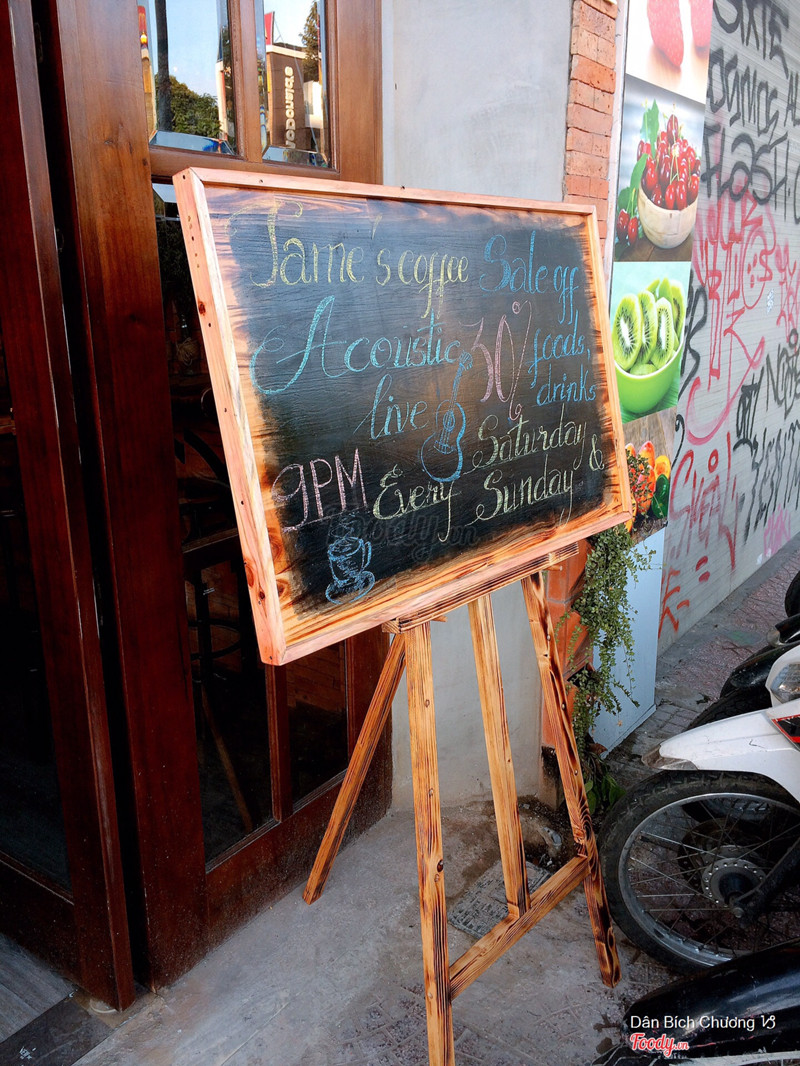 Jame's coffee
Acoustic
live
9PM Every Saturday &
Sunday
Sale off
30% foods,
drinks
McDonald's
Foody.vn
Dân Bích Chương
Foody.vn